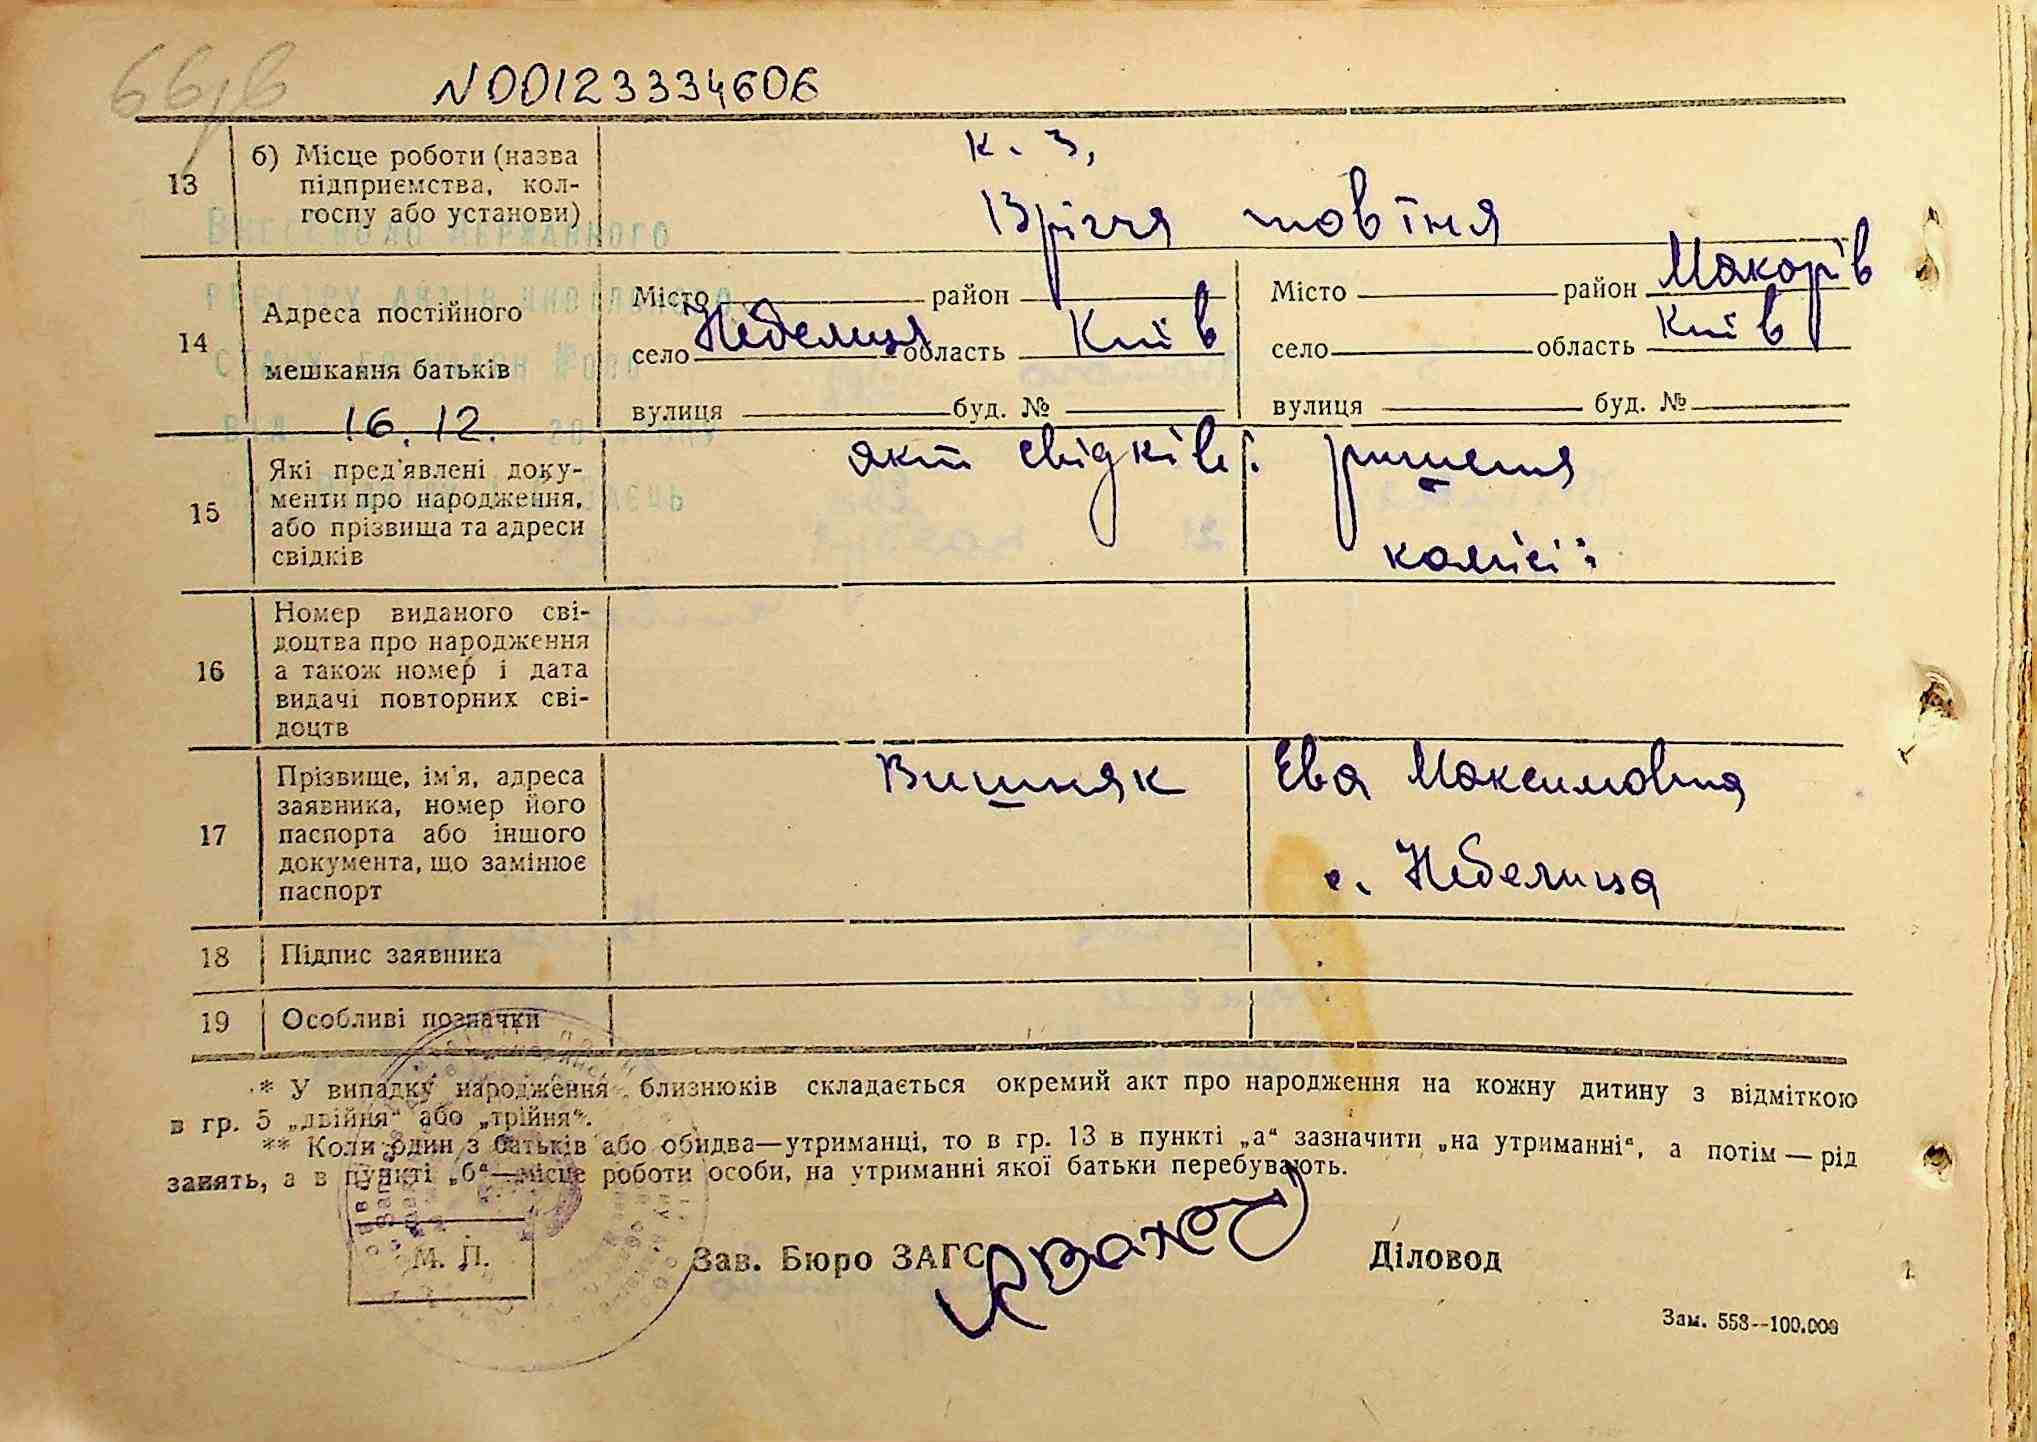 N00123334606
13
б) Місце роботи (назва
підприємства, кол-
госпу або установи)
к. з,
13річчя жовтня
14
Адреса постійного
мешкання батьків
Місто район
село Небелиця область Київ
вулиця буд. №
Місто район Макорів
село область Київ
вулиця буд. №
16.12.
15
Які пред'явлені доку-
менти про народження,
або прізвища та адреси
свідків
акт свідків і ришення
комісії
16
Номер виданого сві-
доцтва про народження
а також номер і дата
видачі повторних сві-
доцтв
17
Прізвище, ім'я, адреса
заявника, номер його
паспорта або іншого
документа, що замінює
паспорт
Вишняк Ева Максимовна
с. Небелица
18 Підпис заявника
19 Особливі позначки
* У випадку народження близнюків складається окремий акт про народження на кожну дитину з відміткою
в гр. 5 „двійня“ або „трійня“.
** Коли один з батьків або обидва—утриманці, то в гр. 13 в пункті „а“ зазначити „на утриманні“, а потім — рід
занять, а в пункті „б“—місце роботи особи, на утриманні якої батьки перебувають.
М. П.
Зав. Бюро ЗАГС
Діловод
Зам. 558--100.000